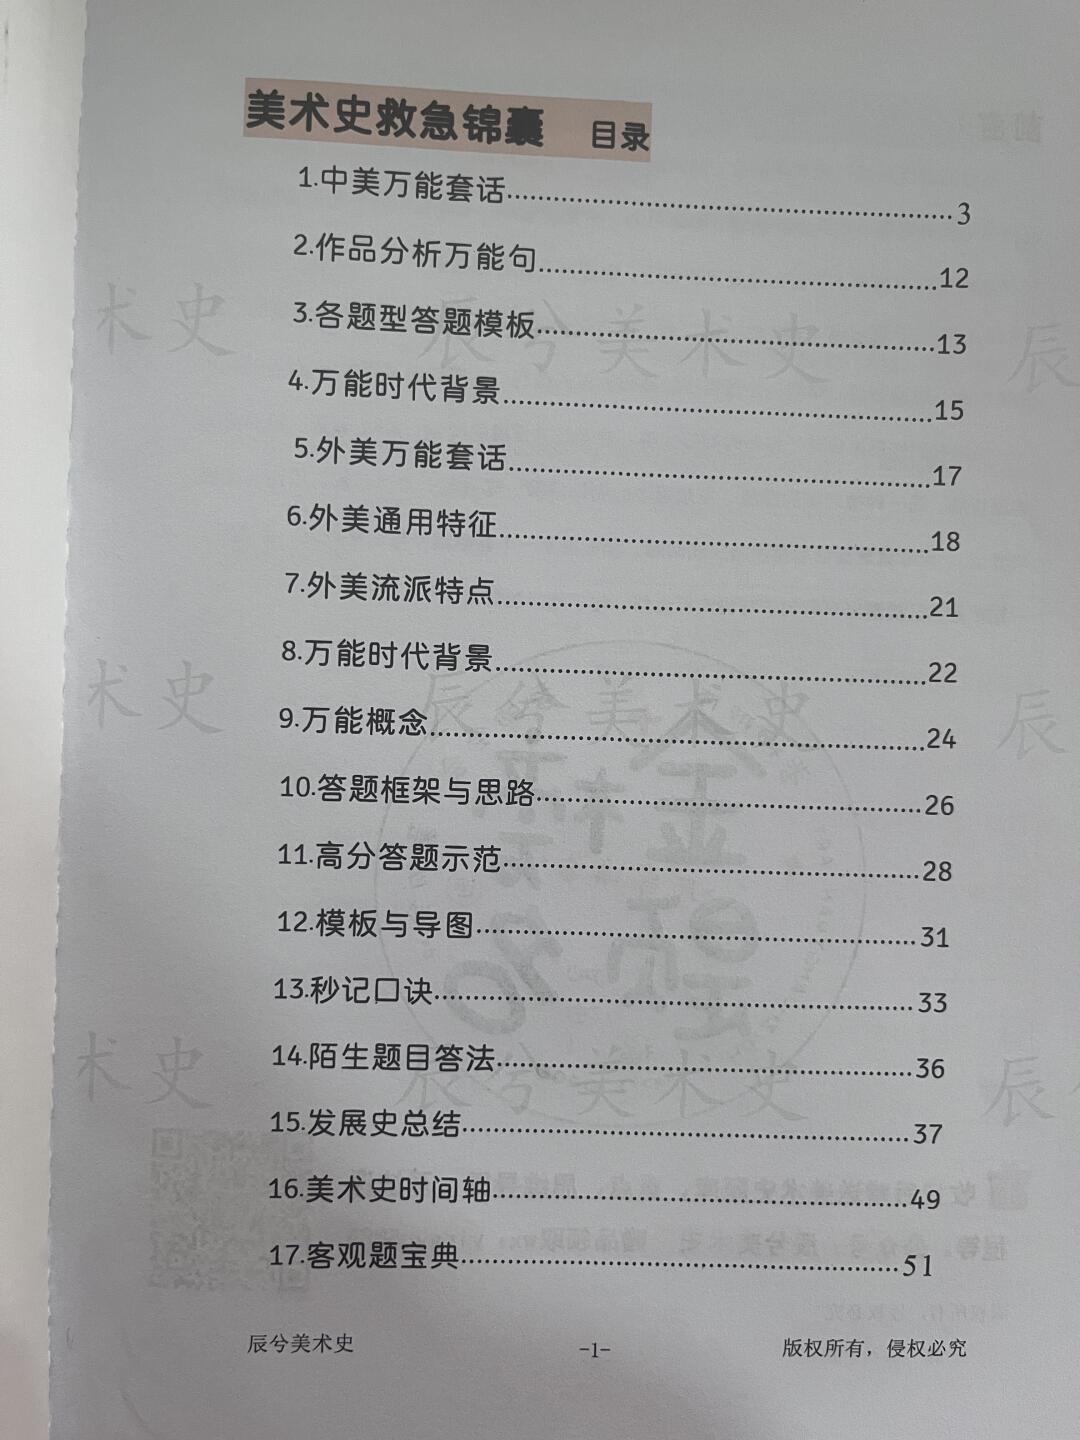 美术史救急锦囊 目录
1.中美万能套话........................3
2.作品分析万能句........................12
3.各题型答题模板........................13
4.万能时代背景........................15
5.外美万能套话........................17
6.外美通用特征........................18
7.外美流派特点........................21
8.万能时代背景........................22
9.万能概念........................24
10.答题框架与思路........................26
11.高分答题示范........................28
12.模板与导图........................31
13.秒记口诀........................33
14.陌生题目答法........................36
15.发展史总结........................37
16.美术史时间轴........................49
17.客观题宝典........................51
术史 辰兮美术史 辰
术史 辰兮美术史 辰
术史 辰兮美术史 辰
辰兮美术史 -1- 版权所有，侵权必究